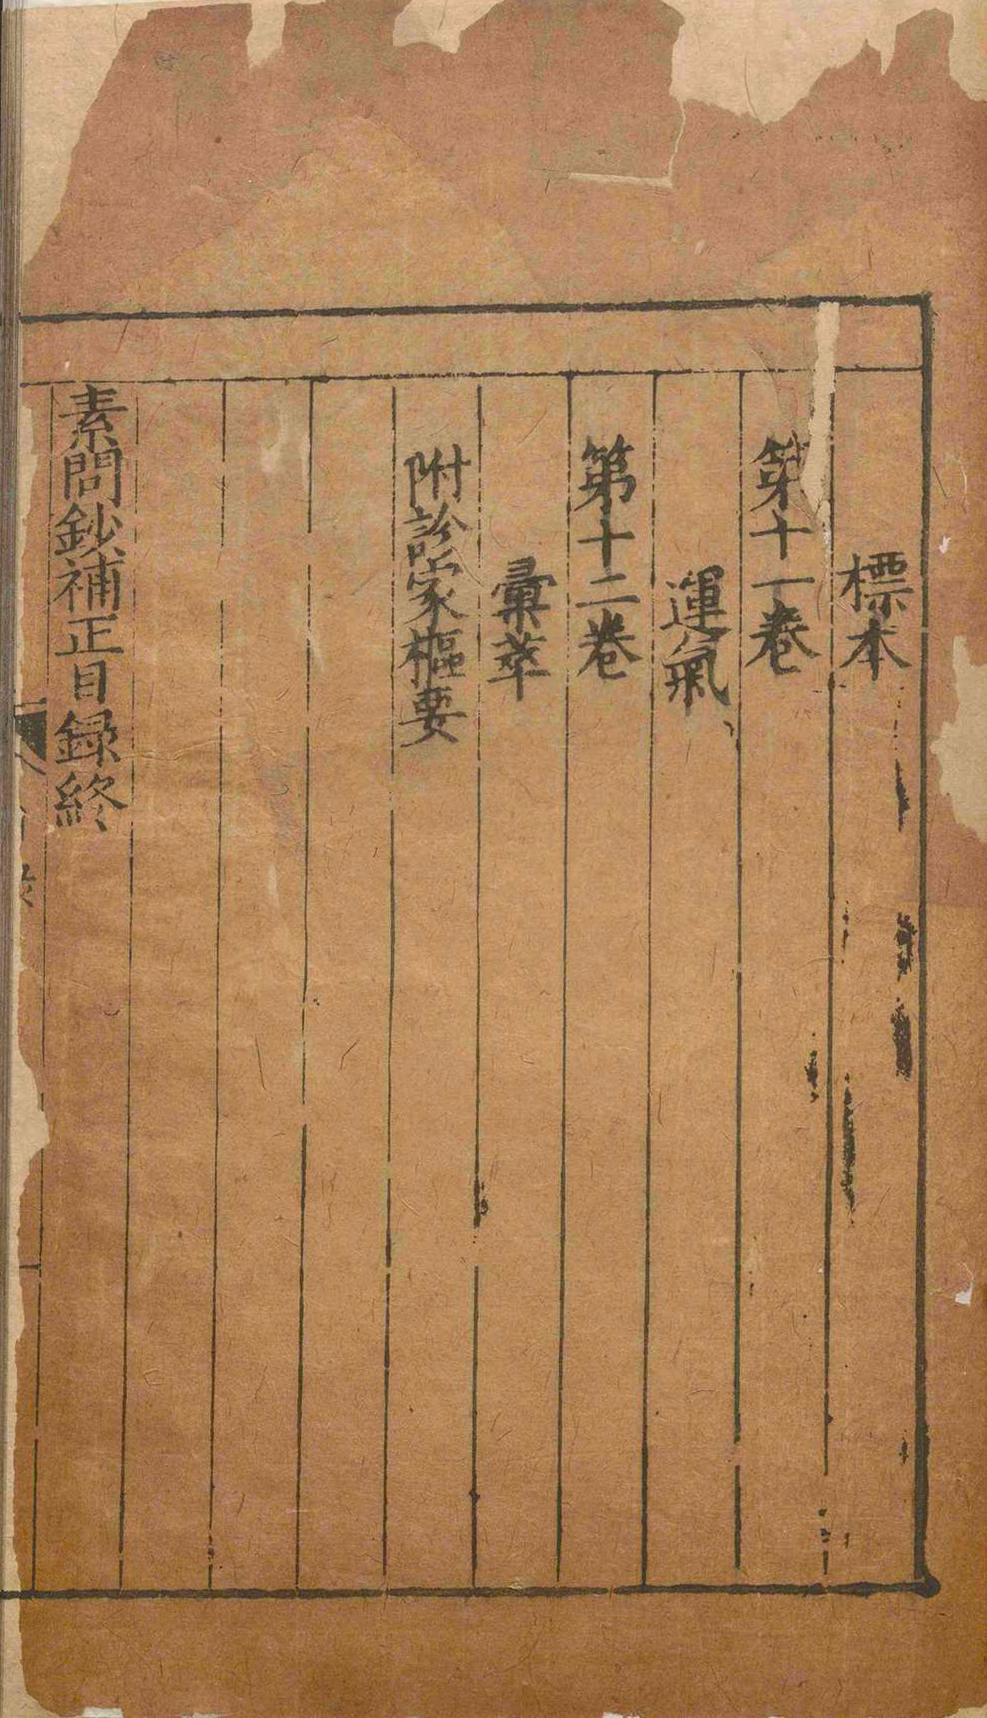 標本
第十一卷
運氣
第十二卷
彙萃
附診家樞要
素問鈔補正目録終